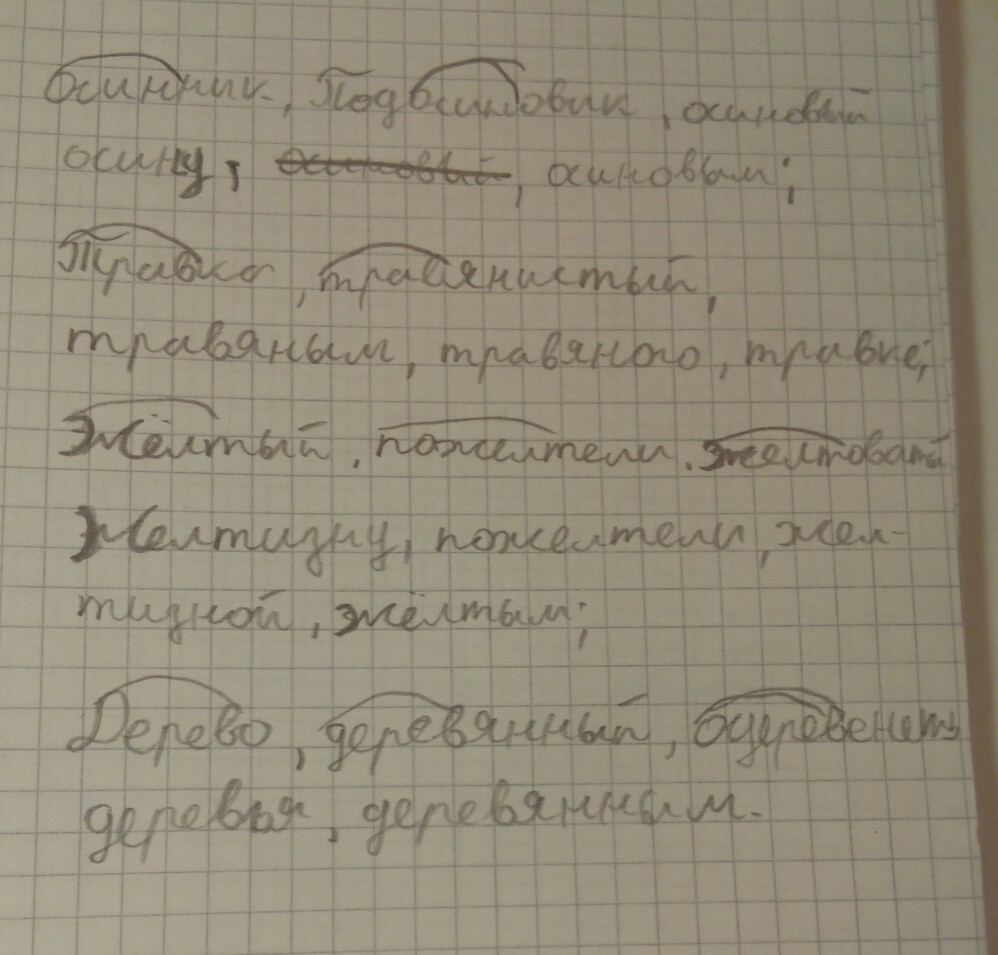 Осинник, Подосиновик, осиновый
осину, осиновый, осиновым;
Травка, травянистый,
травяным, травяного, травке;
Жёлтый, пожелтели, желтоватый
Желтизну, пожелтели, жел-
тизной, жёлтым;
Дерево, деревянный, одеревенеть
деревья, деревянным.